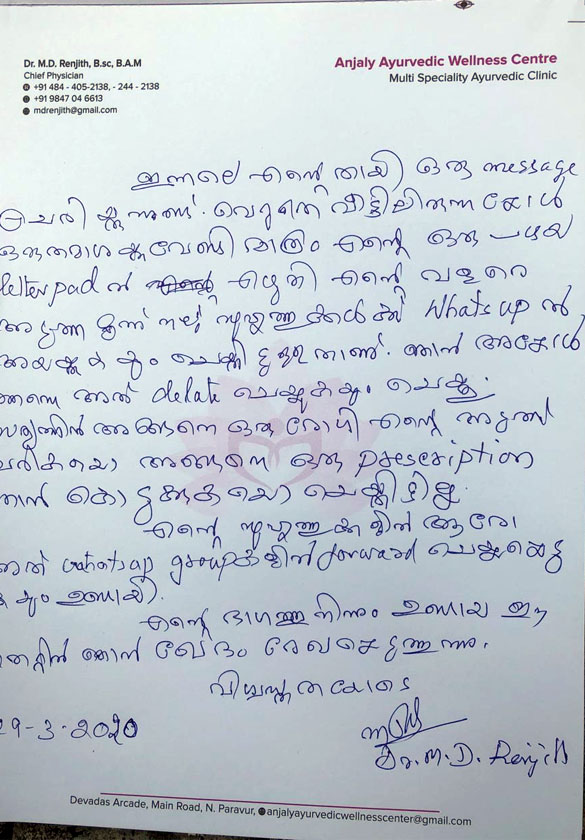 Dr. M.D. Renjith, B.sc, B.A.M
Chief Physician
+91 484 - 405-2138, - 244 - 2138
+91 9847 04 6613
mdrenjith@gmail.com
Anjaly Ayurvedic Wellness Centre
Multi Speciality Ayurvedic Clinic
ഇന്നലെ എന്റെ തായി ഒരു message
വെറുതെ വീട്ടിലിരുന്നപ്പോൾ
ഒരു തമാശക്കുവേണ്ടി മാത്രം എന്റെ ഒരു പഴയ
letter pad ൽ എഴുതി എന്റെ വളരെ
അടുത്ത മൂന്ന് നാല് സുഹൃത്തുക്കൾക്ക് Whatsup ൽ
അയക്കുകയും ചെയ്തിട്ടുള്ളതാണ്. ഞാൻ അപ്പോൾ
തന്നെ അത് delate ചെയ്യുകയും ചെയ്തു.
അങ്ങനെ ഒരു രോഗി എന്റെ അടുത്ത്
വരികയോ അങ്ങനെ ഒരു prescription
ഞാൻ കൊടുക്കുകയോ ചെയ്തിട്ടില്ല.
എന്റെ സുഹൃത്തുക്കളിൽ ആരോ
അത് whatsap groupകളിൽ forward ചെയ്യപ്പെട്ടു
കയും ഉണ്ടായി.
എന്റെ ഭാഗത്തുനിന്നും ഉണ്ടായ ഈ
തെറ്റിൽ ഞാൻ ഖേദം രേഖപ്പെടുത്തുന്നു.
വിശ്വസ്തതയോടെ
29-3-2020
Dr. M. D. Renjith
Devadas Arcade, Main Road, N. Paravur, anjalyayurvedicwellnesscenter@gmail.com